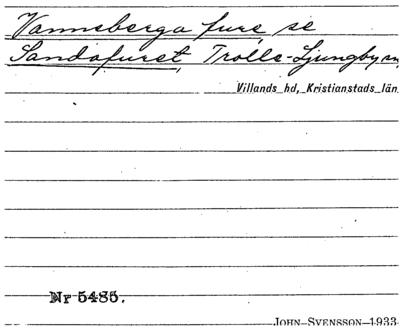 Vanneberga fure, se
Sandafuret, Trolle-Ljungby sn,
Villands hd, Kristianstads län
Nr 5485.
JOHN SVENSSON 1933